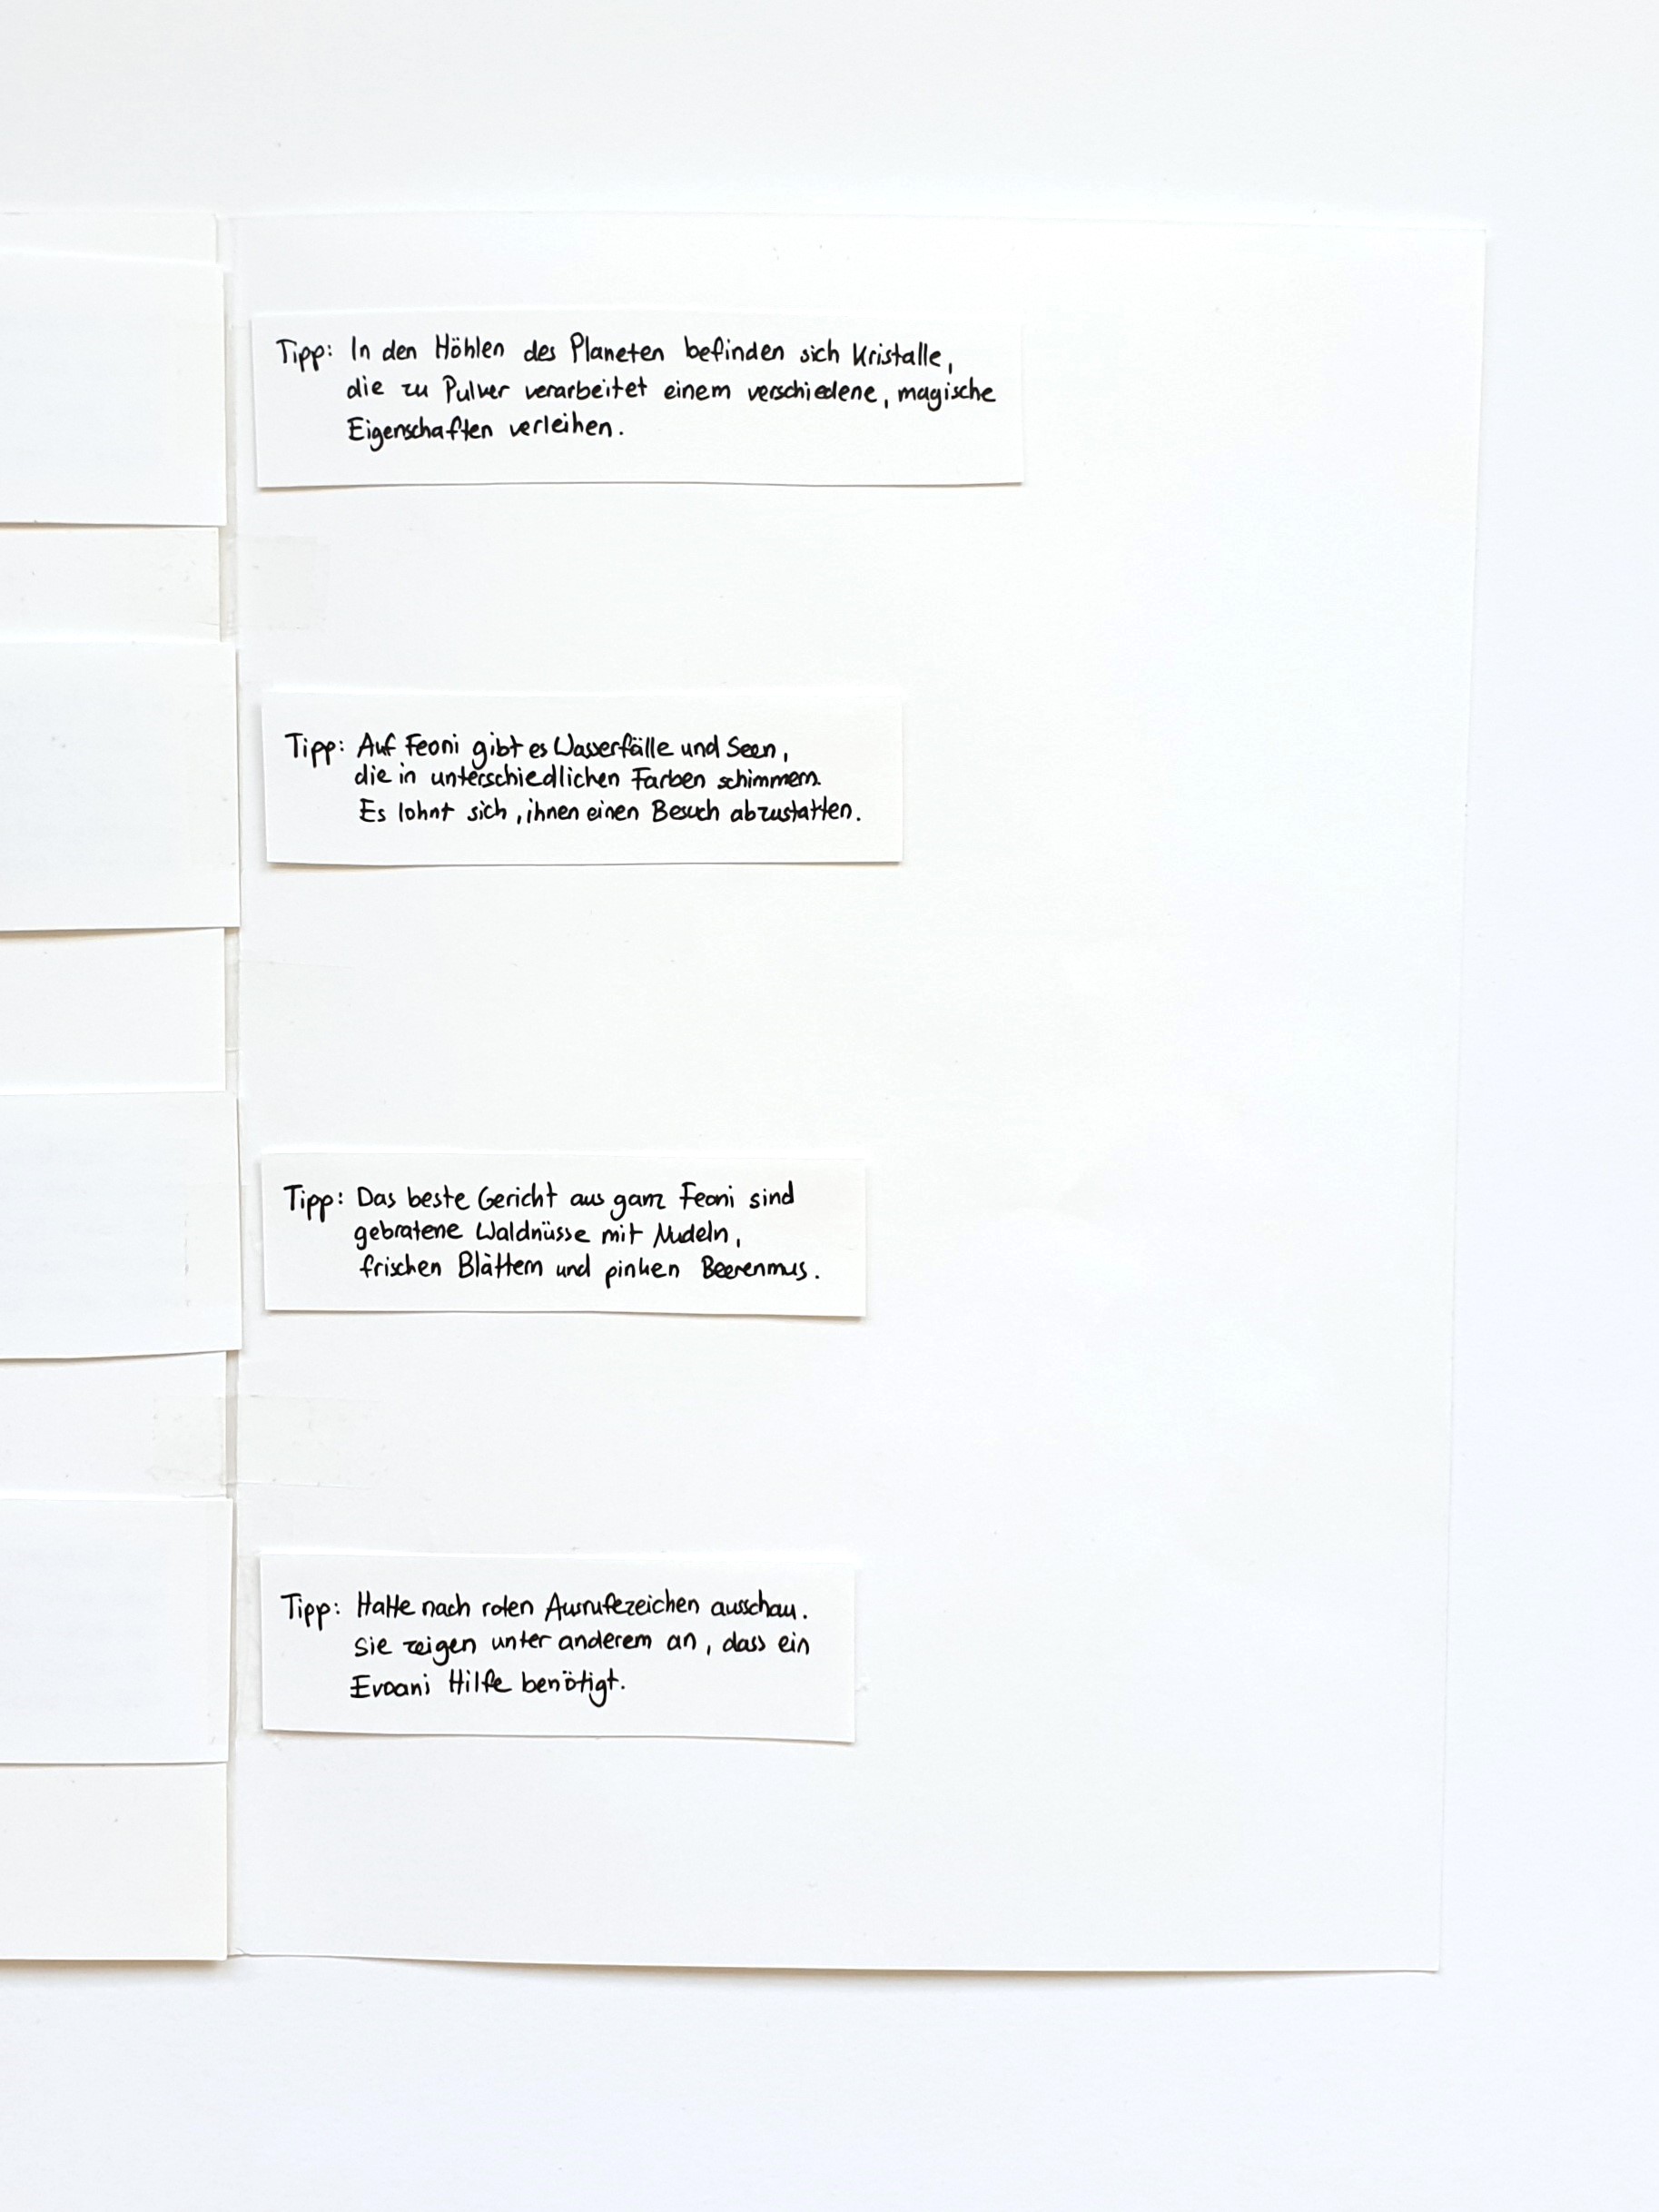 Tipp: In den Höhlen des Planeten befinden sich Kristalle,
die zu Pulver verarbeitet einem verschiedene, magische
Eigenschaften verleihen.
Tipp: Auf Feoni gibt es Wasserfälle und Seen,
die in unterschiedlichen Farben schimmern.
Es lohnt sich, ihnen einen Besuch abzustatten.
Tipp: Das beste Gericht aus ganz Feoni sind
gebratene Waldnüsse mit Nudeln,
frischen Blättern und pinken Beerenmus.
Tipp: Halte nach roten Ausrufezeichen ausschau.
Sie zeigen unter anderem an, dass ein
Evoani Hilfe benötigt.